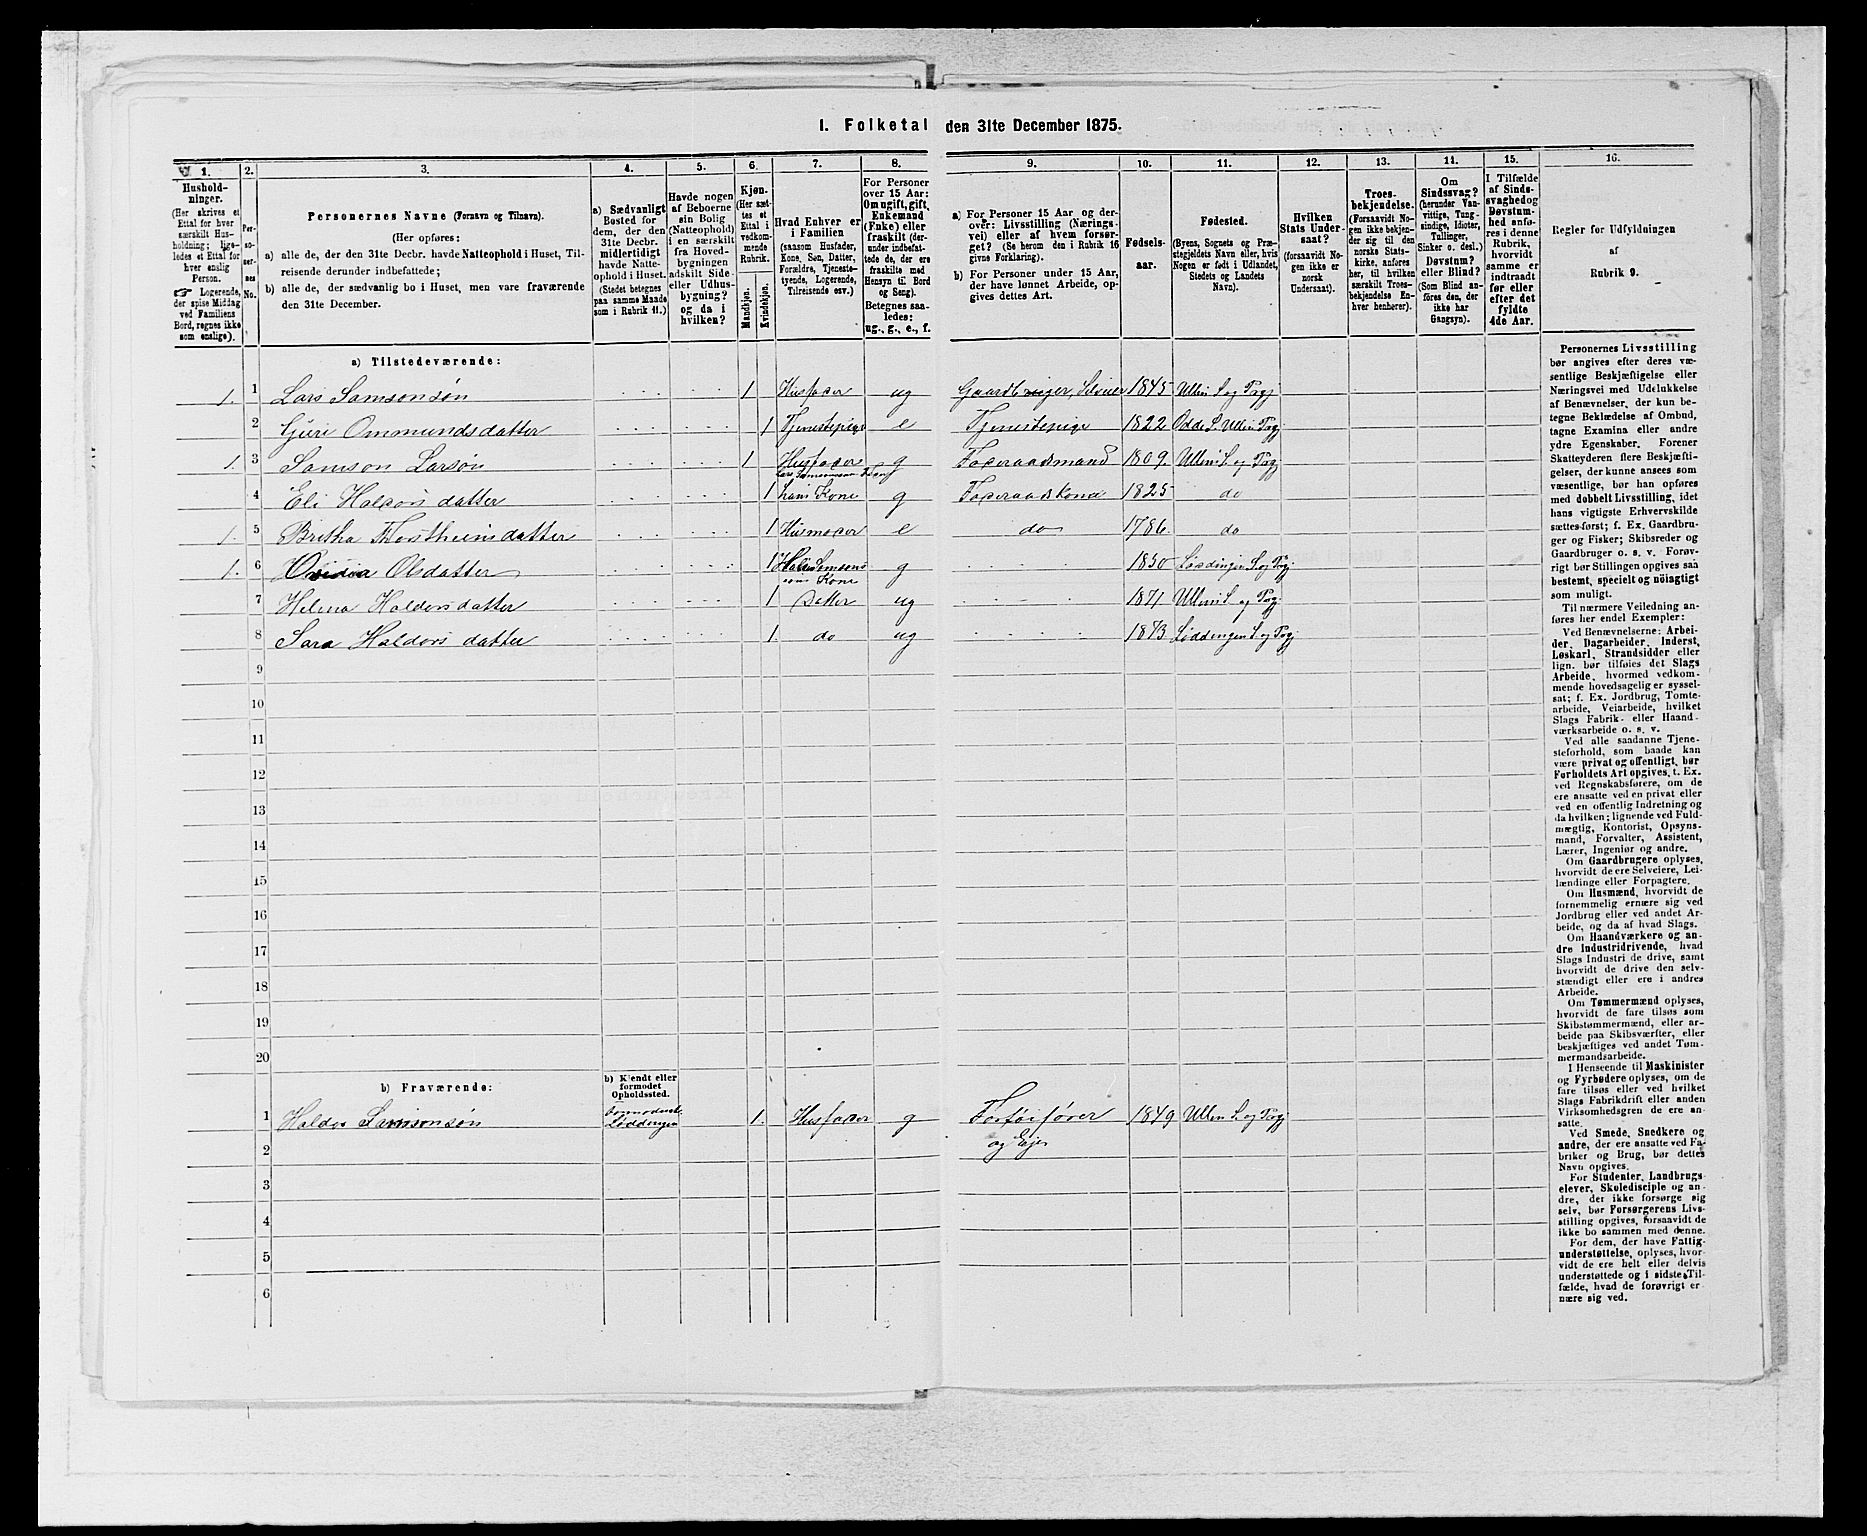 I. Folketal den 31te December 1875.
1. 2. 3. 4. 5. 6. 7. 8. 9. 10. 11. 12. 13. 14. 15. 16.
Hushold-
ninger.
(Her skrives et
Ettal for hver
særskilt Hus-
holdning; lige-
ledes et Ettal for
hver enslig
Person.
☞ Logerende,
der spise Middag
ved Familiens
Bord, regnes ikke
som enslige).
Per-
so-
ner-
nes
No.
Personernes Navne (Fornavn og Tilnavn).
(Her opføres:
a) alle de, der den 31te Decbr. havde Natteophold i Huset, Til-
reisende derunder indbefattede;
b) alle de, der sædvanlig bo i Huset, men vare fraværende
den 31te December.
a) Sædvanligt
Bosted for
dem, der den
31te Decbr.
midlertidigt
havde Natte-
ophold i Huset.
(Stedet betegnes
paa samme Maade
som i Rubrik 11.)
Havde nogen
af Beboerne
sin Bolig
(Natteophold)
i en særskilt
fra Hoved-
bygningen
adskilt Side-
eller Udhus-
bygning?
og da i
hvilken?
Kjøn.
(Her sæt-
tes et
Ettal i
vedkom-
mende
Rubrik.
Mandkjøn.
Kvindekjøn.
Hvad Enhver er
i Familien
(saasom Husfader,
Kone, Søn, Datter,
Forældre, Tjeneste-
tyende, Logerende,
Tilreisende osv.)
For Personer
over 15 Aar:
Om ugift, gift,
Enkemand
(Enke) eller
fraskilt (der-
under indbefat-
tede de, der ere
fraskilte med
Hensyn til Bord
og Seng).
Betegnes saa-
ledes:
ug., g., e., f.
a) For Personer 15 Aar og der-
over: Livsstilling (Nærings-
vei) eller af hvem forsør-
get? (Se herom den i Rubrik 16
givne Forklaring).
b) For Personer under 15 Aar,
der have lønnet Arbeide, op-
gives dettes Art.
Fødsels-
aar.
Fødested.
(Byens, Sognets og Præ-
stegjeldets Navn eller, hvis
Nogen er født i Udlandet,
Stedets og Landets
Navn).
Hvilken
Stats Under-
saat?
(forsaavidt No-
gen ikke er
norsk
Undersaat).
Troes-
bekjendelse.
(Forsaavidt No-
gen ikke bekjen-
der sig til den
norske Stats-
kirke, anføres
her, til hvilken
særskilt Troes-
bekjendelse En-
hver henhører).
Om
Sindssvag?
(herunder Van-
vittige, Tung-
sindige, Idioter,
Tullinger,
Sinker o. desl.)
Døvstum?
eller Blind?
(Som Blind an-
føres den, der
ikke har
Gangsyn).
I Tilfælde
af Sinds-
svaghed og
Døvstum-
hed anfø-
res i denne
Rubrik,
hvorvidt
samme er
indtraadt
før eller
efter det
fyldte
4de Aar.
Regler for Udfyldningen
af
Rubrik 9.
a) Tilstedeværende:
1. 1 Lars Samsonsön 1 Husfader ug Gaardbruger, Selveier 1845 Ullen S og Prgj
2 Guri Ommundsdatter 1 Tjenestepige e Tjenestepige 1822 Odde S. Ullen Prgj
1. 3 Samson Larsön 1 Husfader g Foderaadsmand 1809. Ullen S. og Prgj
4 Eli Haldorsdatter 1 hans Kone g Foderaadskone 1825 do
1. 5 Britha Thostheinsdatter 1 Husmoder e do 1786. do
1. 6 Ovidia Olsdatter 1 Haldor Samsons
söns Kone g 1850 Löddingen S. og Prgj.
7 Helena Haldorsdatter 1 Datter ug 1871 Ullen S. og Prgj.
8 Sara Haldorsdatter 1. do ug 1873 Löddingen S. og Prgj
9
10
11
12
13
14
15
16
17
18
19
20
b) Fraværende:
b) Kjendt eller
formodet
Opholdssted.
1 Haldor Samsonsön Löddingen 1. Husfader g 1849 Ullen S. og Prgj.
2
3
4
5
6
Personernes Livsstilling
bør angives efter deres væ-
sentlige Beskjæftigelse eller
Næringsvei med Udelukkelse
af Benævnelser, der kun be-
tegne Beklædelse af Ombud,
tagne Examina eller andre
ydre Egenskaber. Forener
Skatteyderen flere Beskjæfti-
gelser, der kunne ansees som
væsentlige, bør han opføres
med dobbelt Livsstilling, idet
hans vigtigste Erhvervskilde
sættes først; f. Ex. Gaardbru-
ger og Fisker; Skibsreder og
Gaardbruger o. s. v. Forøv-
rigt bør Stillingen opgives saa
bestemt, specielt og nöiagtigt
som muligt.
Til nærmere Veiledning an-
føres her endel Exempler:
Ved Benævnelserne: Arbei-
der, Dagarbeider, Inderst,
Løskarl, Strandsidder eller
lign. bør tilføies det Slags
Arbeide, hvormed vedkom-
mende hovedsagelig er syssel-
sat; f. Ex. Jordbrug, Tomte-
arbeide, Veiarbeide, hvilket
Slags Fabrik- eller Haand-
værksarbeide o. s. v.
Ved alle saadanne Tjene-
steforhold, som baade kan
være privat og offentligt, bør
Forholdets Art opgives, t. Ex.
ved Regnskabsførere, om de
ere ansatte ved en privat eller
ved en offentlig Indretning og
da hvilken; lignende ved Fuld-
mægtig, Kontorist, Opsyns-
mand, Forvalter, Assistent,
Lærer, Ingeniør og andre.
Om Gaardbrugere oplyses,
hvorvidt de ere Selveiere, Lei-
lændinge eller Forpagtere.
Om Husmænd, hvorvidt de
fornemmelig ernære sig ved
Jordbrug eller ved andet Ar-
beide, og da af hvad Slags.
Om Haandværkere og an-
dre Industridrivende, hvad
Slags Industri de drive, samt
hvorvidt de drive den selv-
stændigt eller ere i andres
Arbeide.
Om Tømmermænd oplyses,
hvorvidt de fare tilsøs som
Skibstømmermænd, eller ar-
beide paa Skibsværfter, eller
beskjæftiges ved andet Tøm-
mermandsarbeide.
I Henseende til Maskinister
og Fyrbødere oplyses, om de
fare tilsøs eller ved hvilket
Slags Fabrikdrift eller anden
Virksomhedsgren de ere an-
satte.
Ved Smede, Snedkere og
andre, der ere ansatte ved Fa-
briker og Brug, bør dettes
Navn opgives.
For Studenter, Landbrugs-
elever, Skoledisciple og an-
dre, der ikke forsørge sig
selv, bør Forsørgerens Livs-
stilling opgives, forsaavidt de
ikke bo sammen med denne.
For dem, der have Fattig-
understøttelse, oplyses, hvor-
vidt de ere helt eller delvis
understøttede og i sidste Til-
fælde, hvad de forøvrigt er-
nære sig ved.